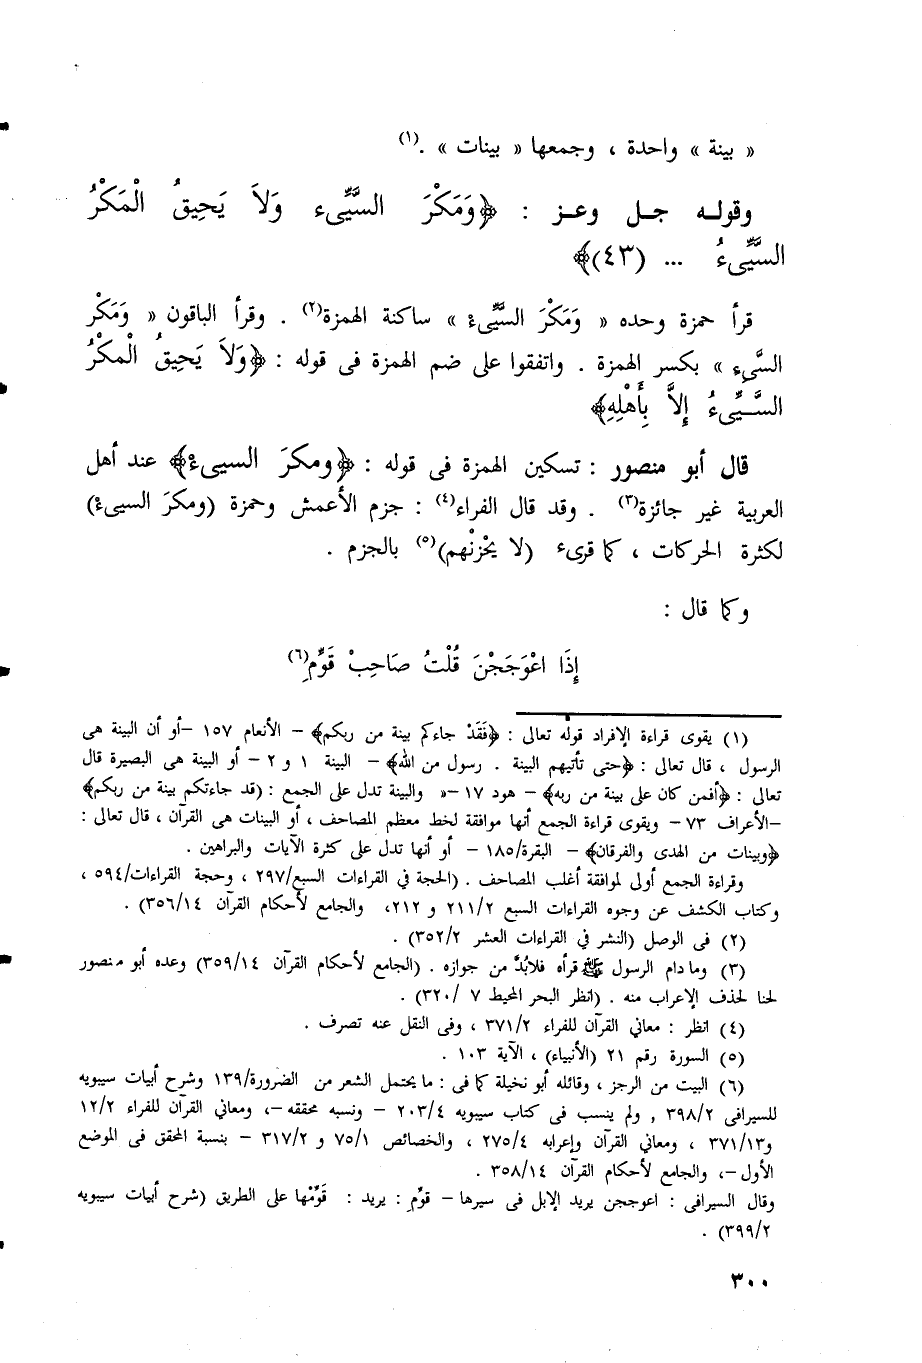 « بينة » واحدة ، وجمعها « بينات » .(١)
وقوله جل وعز : ﴿وَمَكْرَ السَّيِّىء وَلاَ يَحِيقُ الْمَكْرُ
السَّيِّىءُ ... (٤٣)﴾
قرأ حمزة وحده « وَمَكْرَ السَّيِّىءْ » ساكنة الهمزة(٢) . وقرأ الباقون « وَمَكْرَ
السَّىِءِ » بكسر الهمزة . واتفقوا على ضم الهمزة فى قوله : ﴿وَلاَ يَحِيقُ الْمكْرُ
السَّيِّىءُ إِلاَّ بِأَهْلِهِ﴾
قال أبو منصور : تسكين الهمزة فى قوله : ﴿ومكرَ السيىءْ﴾ عند أهل
العربية غير جائزة(٣) . وقد قال الفراء(٤) : جزم الأعمش وحمزة (ومكرَ السيىءْ)
لكثرة الحركات ، كما قرىء (لا يحْزنْهم)(٥) بالجزم .
وكما قال :
إِذَا اعْوَجَجْنَ قُلْتُ صَاحِبْ قَوِّمِ(٦)
(١) يقوى قراءة الإفراد قوله تعالى : ﴿فَقَدْ جاءكم بينة من ربكم﴾ – الأنعام ١٥٧ –أو أن البينة هى
الرسول ، قال تعالى : ﴿حتى تأتيهم البينة . رسول من الله﴾ – البينة ١ و ٢ – أو البينة هى البصيرة قال
تعالى : ﴿أفمن كان على بينة من ربه﴾ – هود ١٧ –« والبينة تدل على الجمع : (قد جاءتكم بينة من ربكم﴾
–الأعراف ٧٣ – ويقوى قراءة الجمع أنها موافقة لخط معظم المصاحف ، أو البينات هى القرآن ، قال تعالى :
﴿وبينات من الهدى والفرقان﴾ – البقرة/١٨٥ – أو أنها تدل على كثرة الآيات والبراهين .
وقراءة الجمع أولى لموافقة أغلب المصاحف . (الحجة في القراءات السبع/٢٩٧ ، وحجة القراءات/٥٩٤ ،
وكتاب الكشف عن وجوه القراءات السبع ٢١١/٢ و ٢١٢، والجامع لأحكام القرآن ٣٥٦/١٤) .
(٢) فى الوصل (النشر في القراءات العشر ٣٥٢/٢) .
(٣) وما دام الرسول ﷺ قرأه فلابُدَّ من جوازه . (الجامع لأحكام القرآن ٣٥٩/١٤) وعده أبو منصور
لحنا لحذف الإعراب منه . (انظر البحر المحيط ٧ /٣٢٠) .
(٤) انظر : معاني القرآن للفراء ٣٧١/٢ ، وفى النقل عنه تصرف .
(٥) السورة رقم ٢١ (الأنبياء) ، الآية ١٠٣ .
(٦) البيت من الرجز ، وقائله أبو نخيلة كما فى : ما يحتمل الشعر من الضرورة/١٣٩ وشرح أبيات سيبويه
للسيرافى ٣٩٨/٢ , ولم ينسب فى كتاب سيبويه ٢٠٣/٤ – ونسبه محققه –، ومعاني القرآن للفراء ١٢/٢
و٣٧١/١٣ ، ومعاني القرآن وإعرابه ٢٧٥/٤ ، والخصائص ٧٥/١ و ٣١٧/٢ – بنسبة المحقق فى الموضع
الأول –، والجامع لأحكام القرآن ٣٥٨/١٤ .
وقال السيرافى : اعوججن يريد الإبل فى سيرها – قوِّمِ : يريد : قَوِّمْها على الطريق (شرح أبيات سيبويه
٣٩٩/٢) .
٣٠٠